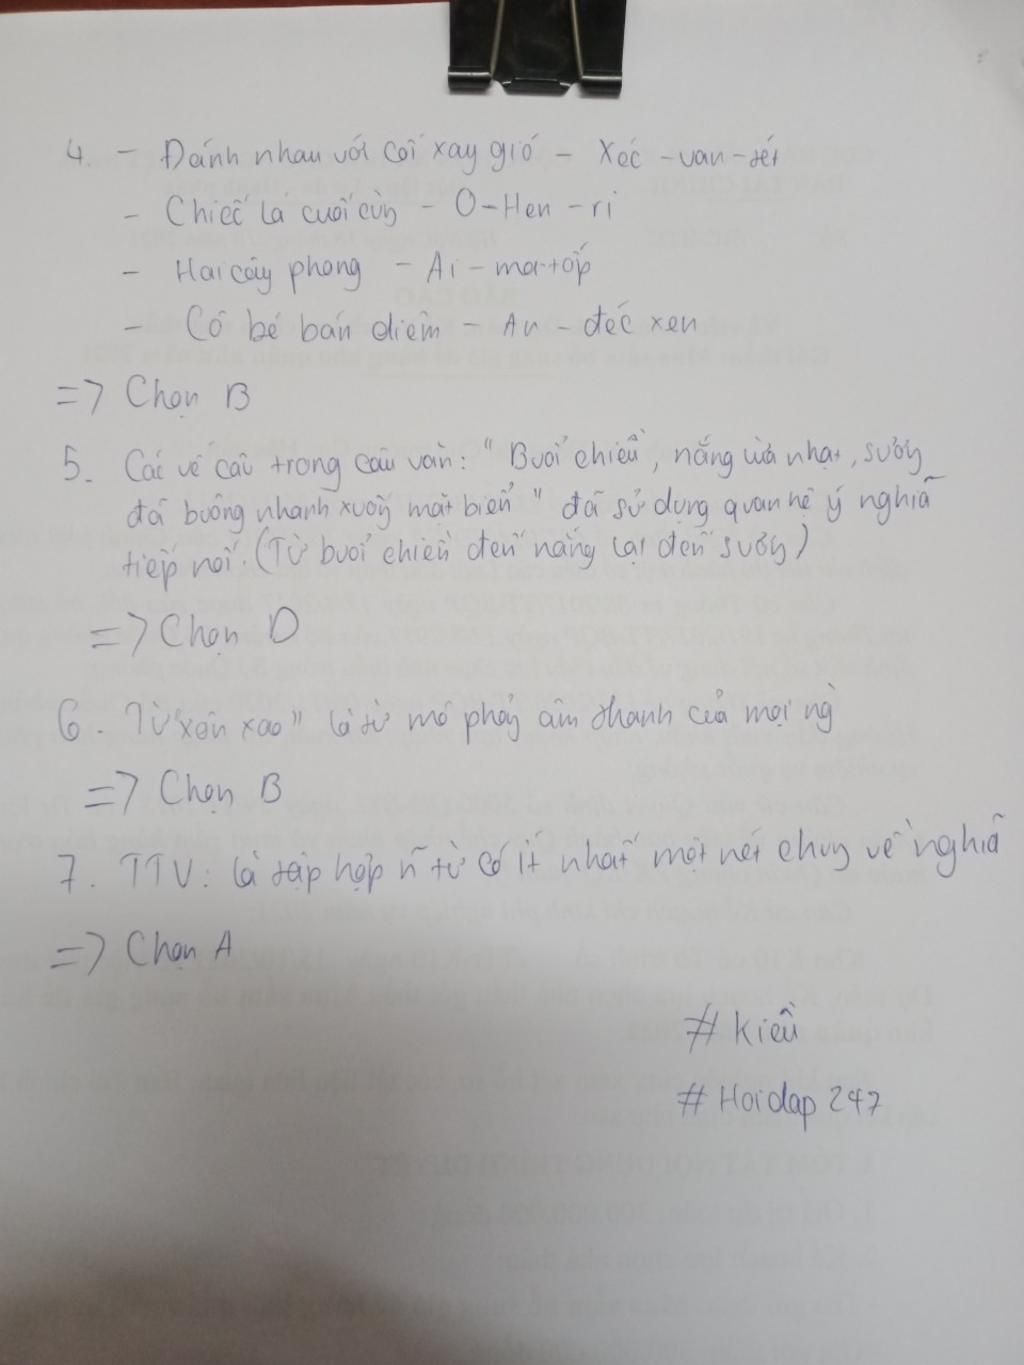 4. - Đánh nhau với cối xay gió - Xéc - van - tét
- Chiếc lá cuối cùng - O - Hen - ri
- Hai cây phong - Ai - ma - tốp
- Cô bé bán diêm - An - đéc xen
=> Chọn B
5. Các vế câu trong câu văn: "Buổi chiều, nắng vừa nhạt, sương
đã buông nhanh xuống mặt biển" đã sử dụng quan hệ ý nghĩa
tiếp nối. (Từ buổi chiều đến nắng lại đến sương)
=> Chọn D
6. Từ "xôn xao" là từ mô phỏng âm thanh của mọi ng
=> Chọn B
7. TTV: là tập hợp n~ từ có ít nhất một nét chung về nghĩa
=> Chọn A
# Kiều
# Hoidap 247